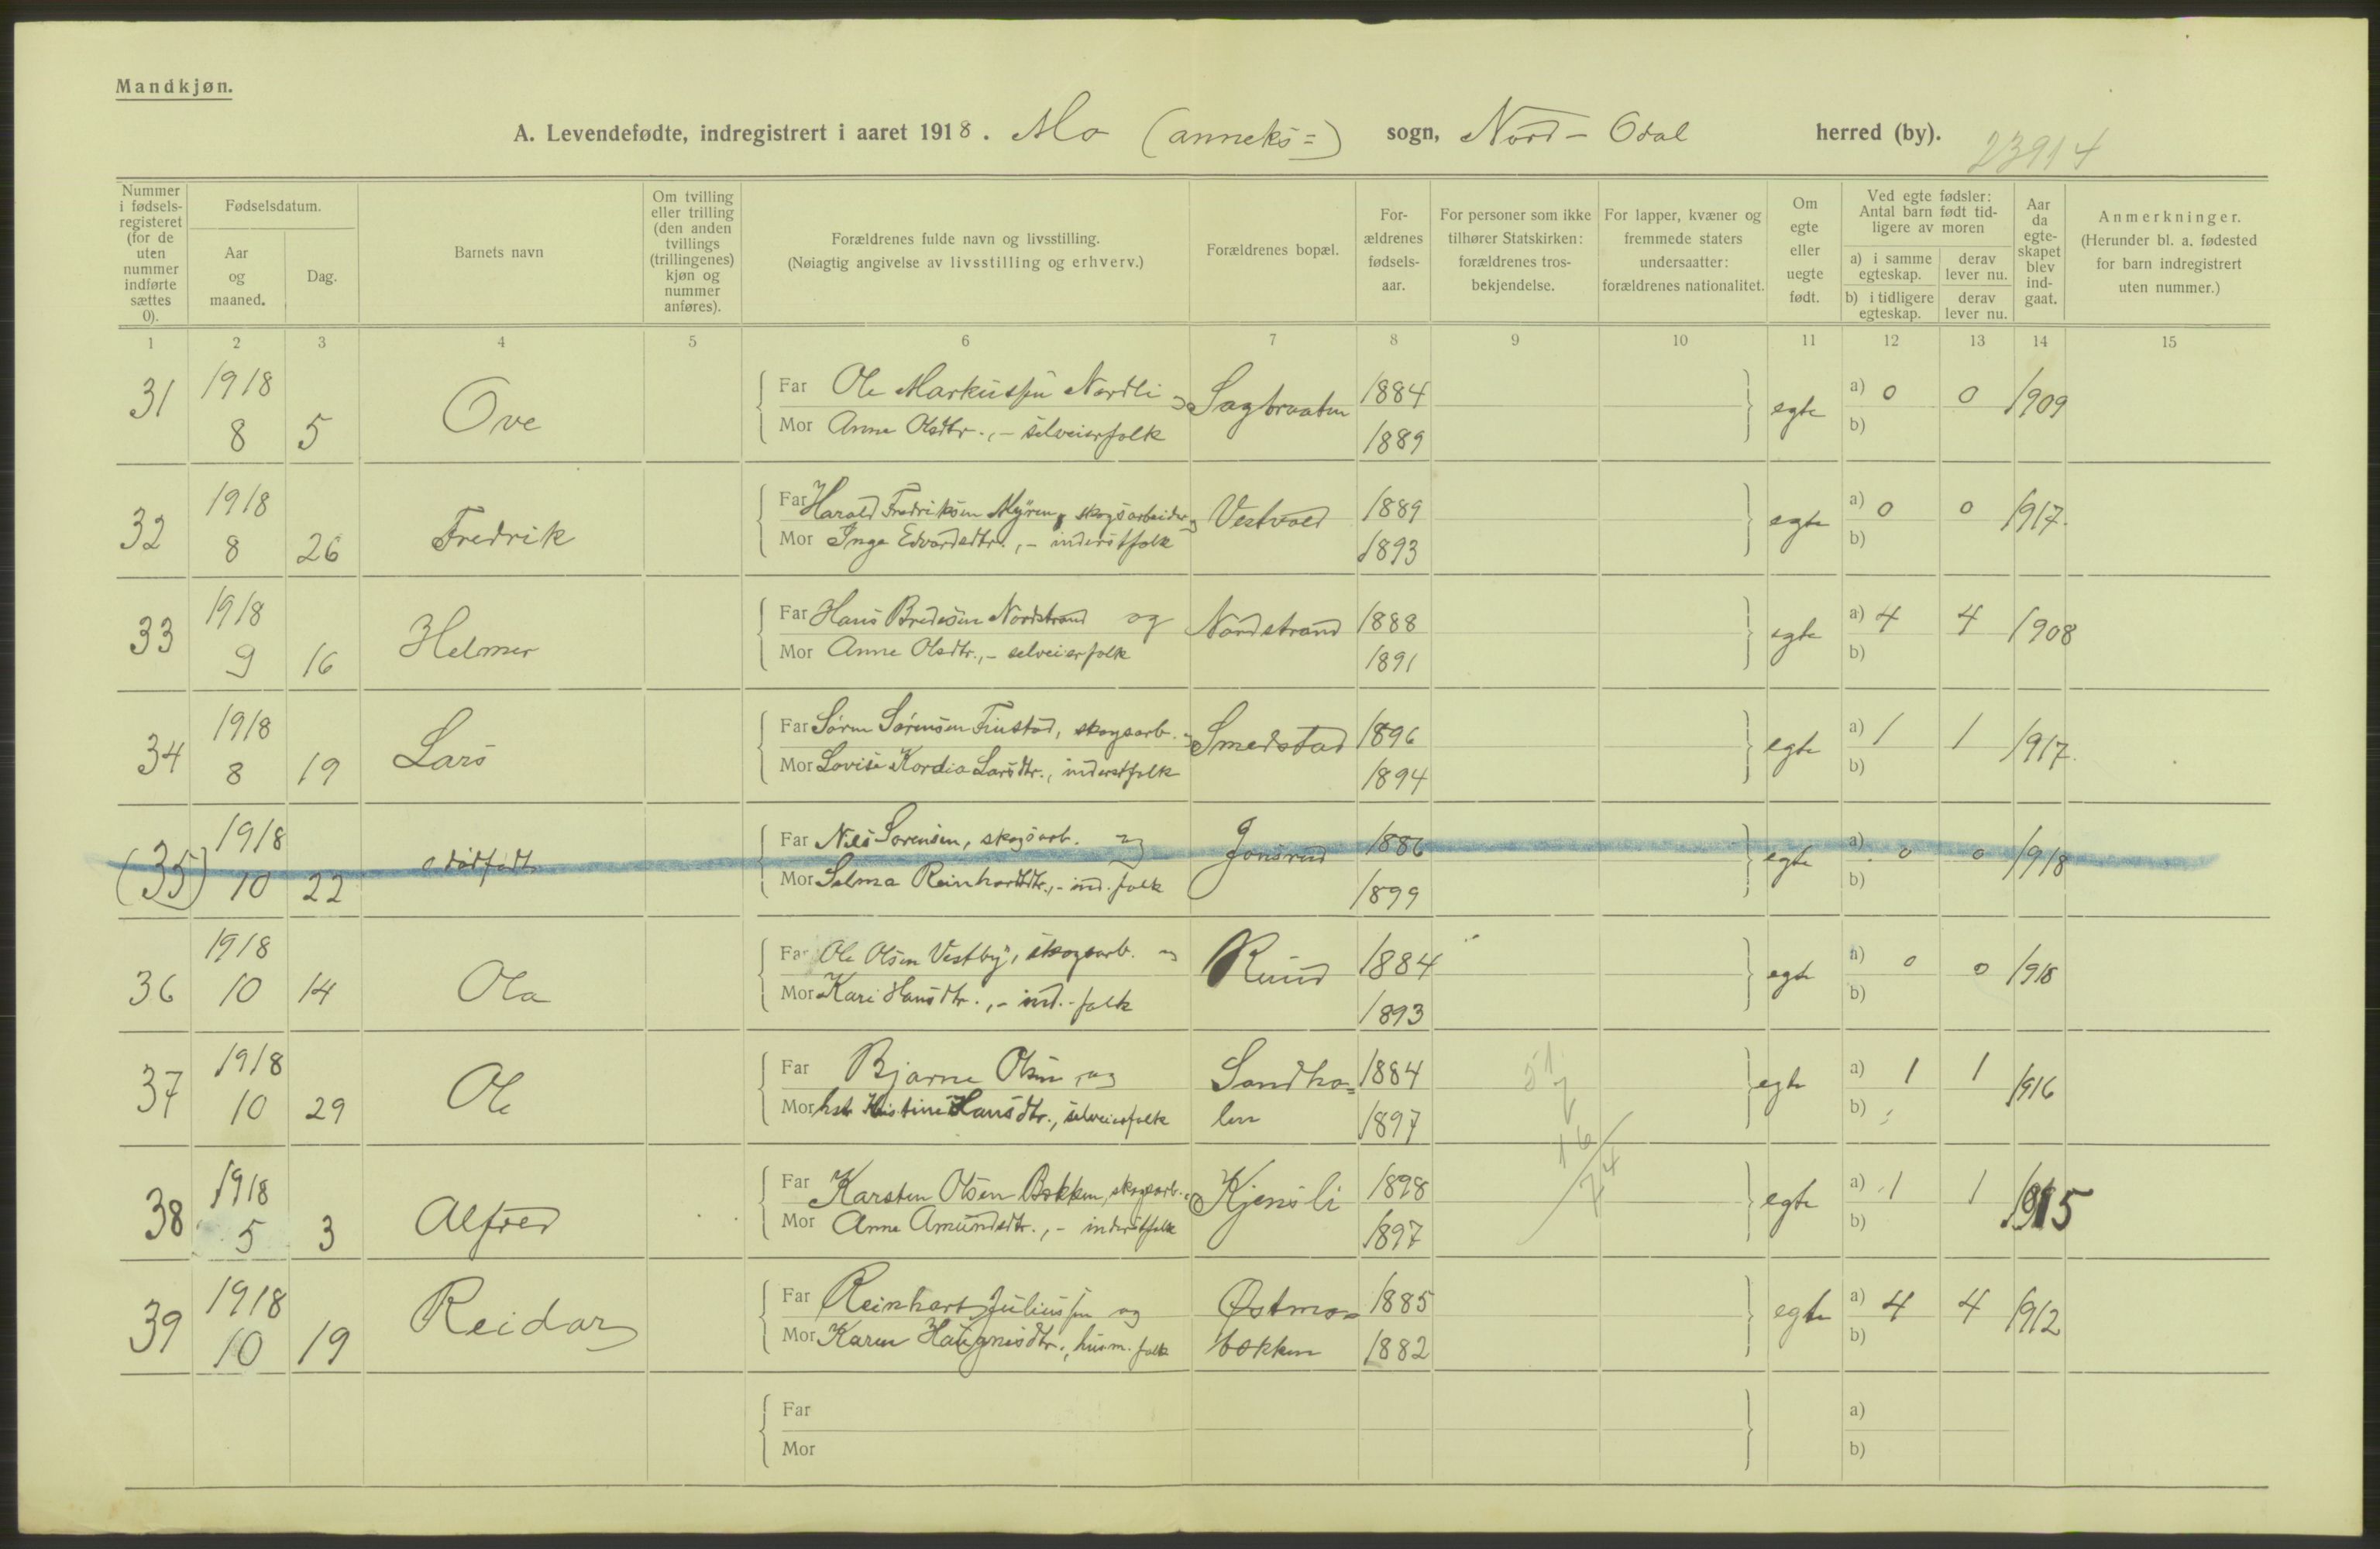 Mandkjøn.
A. Levendefødte, indregistrert i aaret 1918. Mo (anneks=) sogn, Nord-Odal herred (by). 23914
Nummer i fødsels-registeret (for de uten nummer indførte sættes 0).
Fødselsdatum.
Aar og maaned.
Dag.
Barnets navn
Om tvilling eller trilling (den anden tvillings (trillingenes) kjøn og nummer anføres).
Forældrenes fulde navn og livsstilling.
(Nøiagtig angivelse av livsstilling og erhverv.)
Forældrenes bopæl.
For-ældrenes fødsels-aar.
For personer som ikke tilhører Statskirken: forældrenes tros-bekjendelse.
For lapper, kvæner og fremmede staters undersaatter: forældrenes nationalitet.
Om egte eller uegte født.
Ved egte fødsler: Antal barn født tid-ligere av moren
a) i samme egteskap.
derav lever nu.
b) i tidligere egteskap.
derav lever nu.
Aar da egte-skapet blev ind-gaat.
Anmerkninger.
(Herunder bl. a. fødested for barn indregistrert uten nummer.)
1 2 3 4 5 6 7 8 9 10 11 12 13 14 15
31 1918 8 5 Ove Far Ole Markussen Nordli og Sagbraaten 1884 egte a) 0 0 1909
Mor Anne Olsdtr., - selveierfolk 1889 b)
32 1918 8 26 Fredrik Far Harald Fredriksen Myren, skogsarbeider og Vestvold 1889 egte a) 0 0 1917.
Mor Inga Edvardsdtr., - inderstfolk 1893 b)
33 1918 9 16 Helmer Far Hans Bredesen Nordstrand og Nordstrand 1888 egte a) 4 4 1908
Mor Anne Olsdtr., - selveierfolk 1891 b)
34 1918 8 19 Lars Far Søren Sørensen Finstad, skogsarb. og Smedstad 1896 egte a) 1 1 1917.
Mor Lovise Kordia Larsdtr., inderstfolk 1894 b)
(35) 1918 10 22 dødfødt Far Nils Sørensen, skogsarb. og Jonsrud 1886 egte a) 0 0 1918
Mor Selma Reinhardtdtr., - ind. folk 1899 b)
36 1918 10 14 Ola Far Ole Olsen Vestby, skogsarb. og Ruud 1884 egte a) 0 0 1918
Mor Kari Hansdtr., - ind.-folk 1893 b)
37 1918 10 29 Ole Far Bjarne Olsen og Sandho= 1884 egte a) 1 1 1916
Mor hst Kristine Hansdtr., selveierfolk len 1897 b)
38 1918 5 3 Alfred Far Karsten Olsen Bakken, skogsarb. Kjensli 1898 egte a) 1 1 1915
Mor Anne Amundsdtr., - inderstfolk 1897 b)
39 1918 10 19 Reidar Far Reinhart Juliussen og Østmo= 1885 egte a) 4 4 1912
Mor Karen Haagensdtr., husm. folk bakken 1882 b)
Far a)
Mor b)